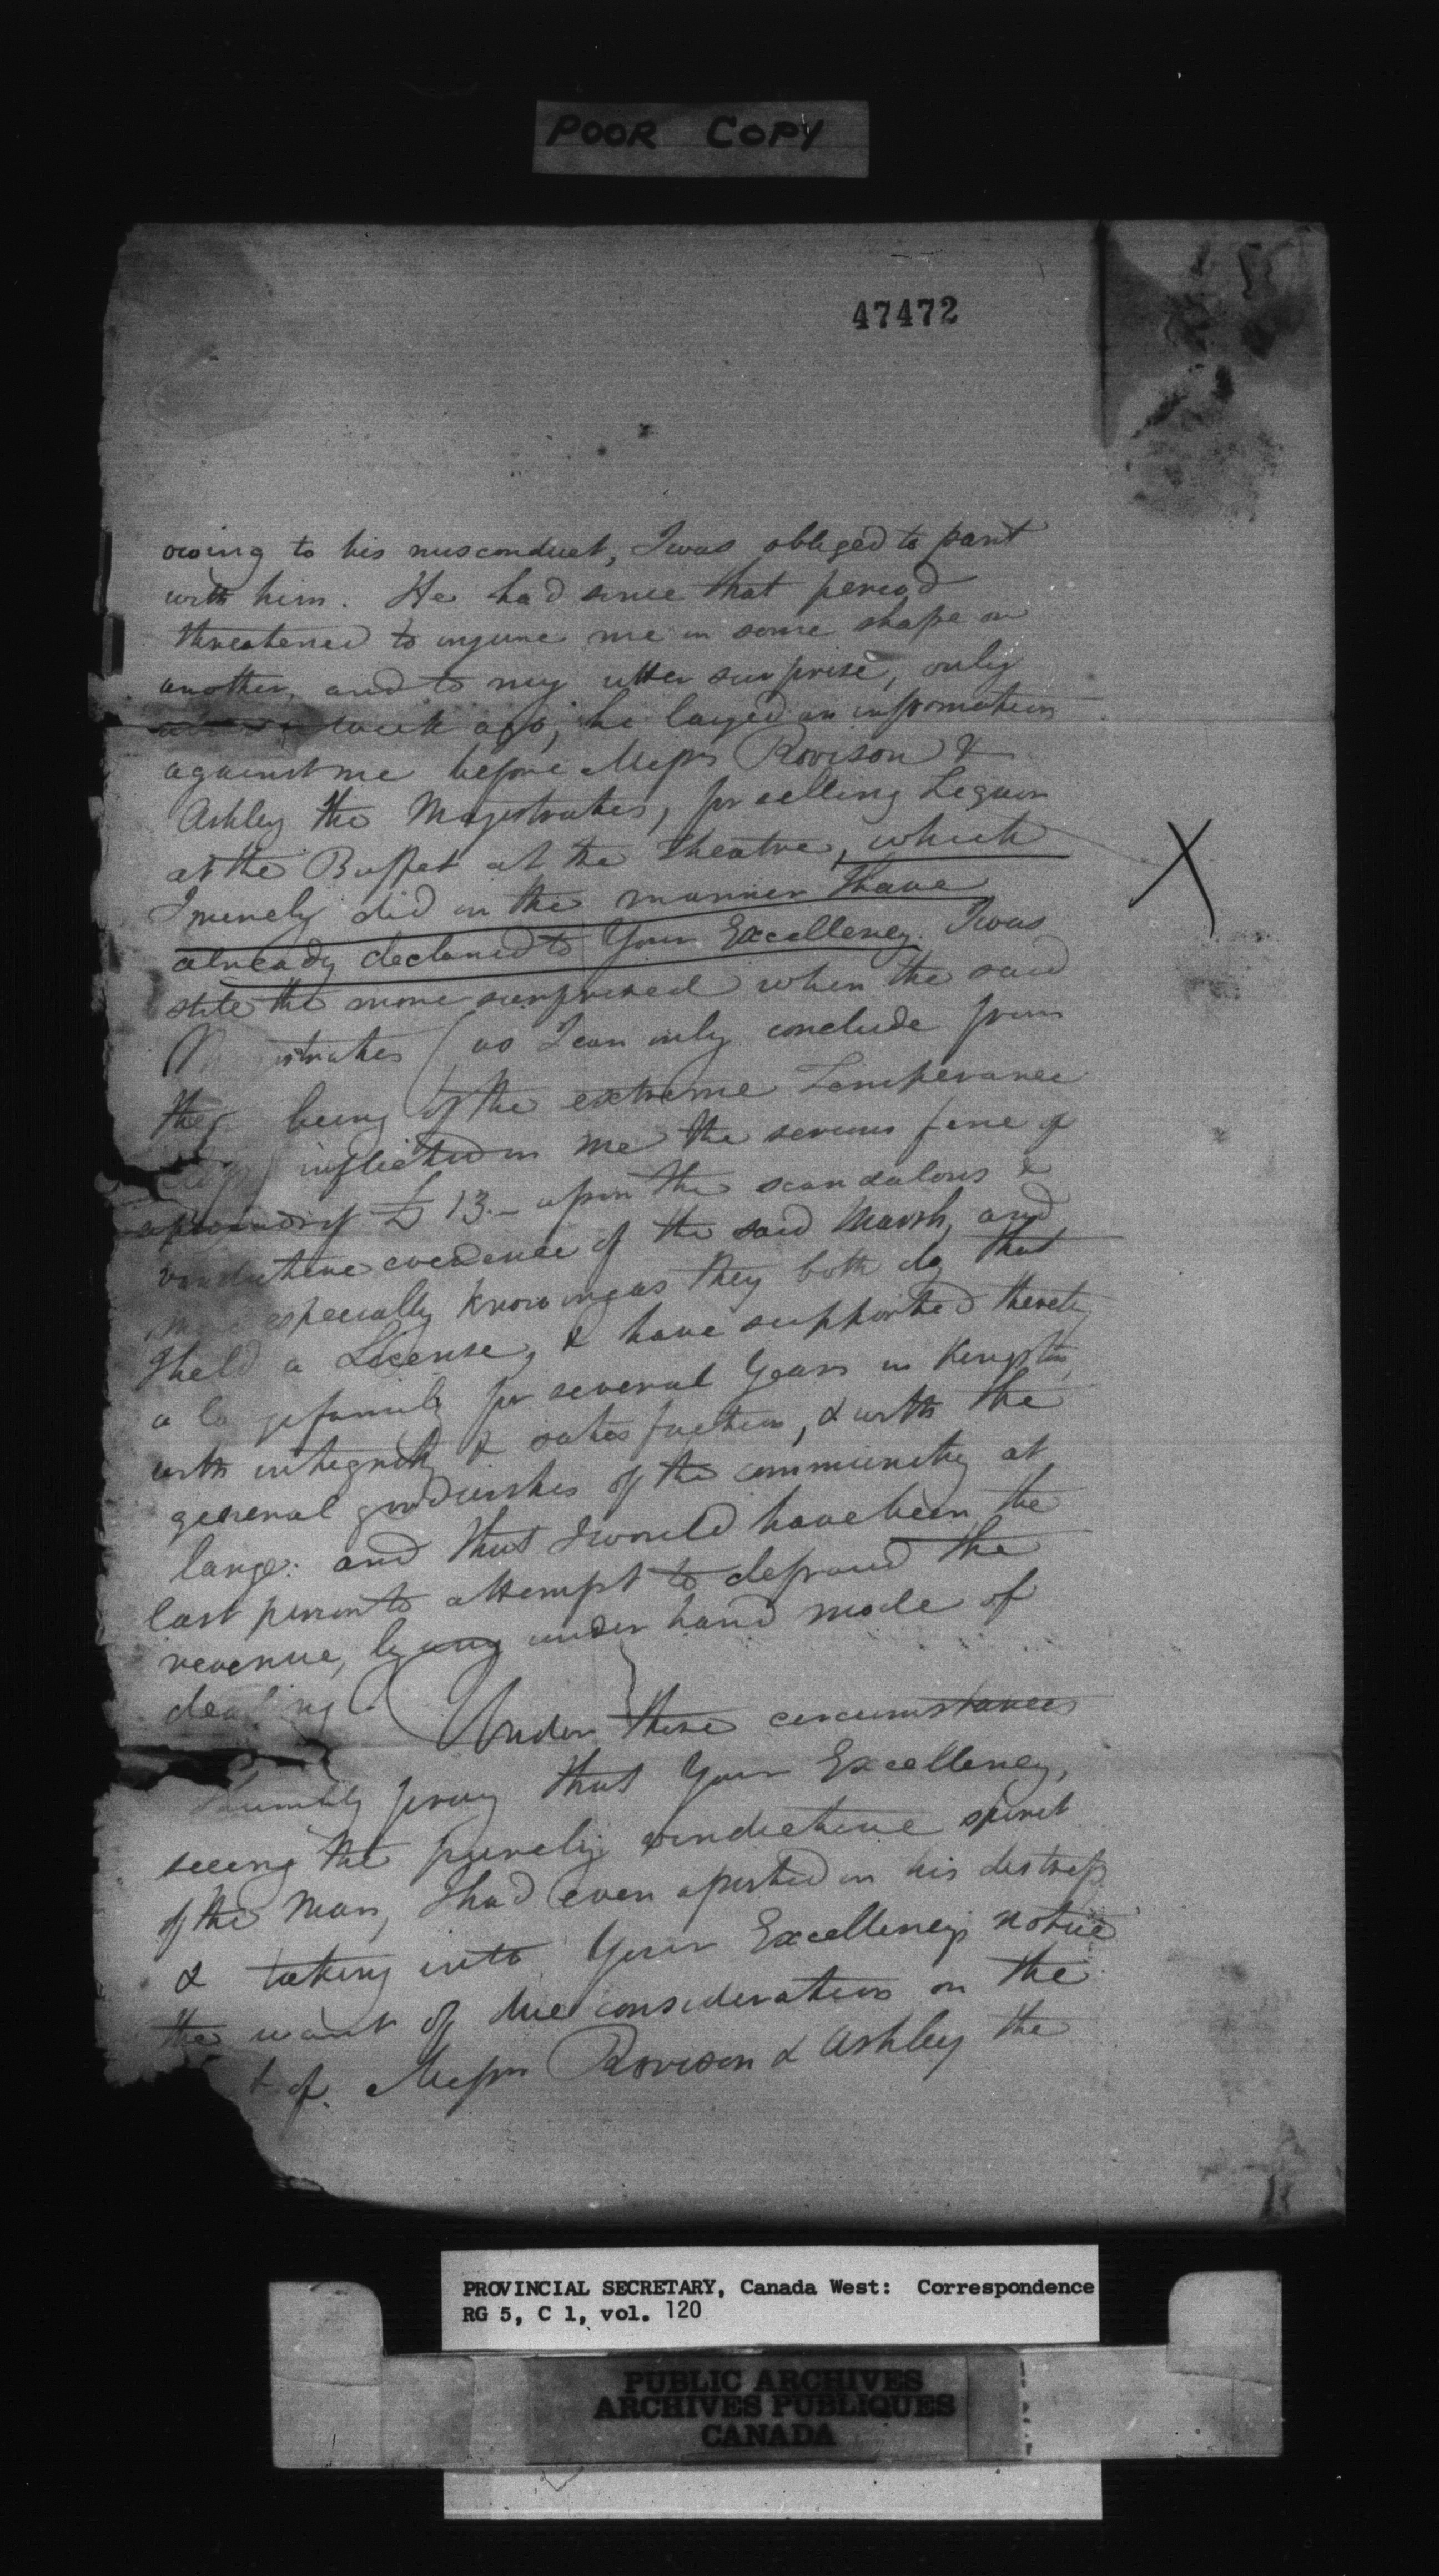 POOR COPY
47472
owing to his misconduct, I was obliged to part
with him. He had since that period
threatened to injure me in some shape or
another, and to my utter surprise, only
week ago, he layed an information
against me before Messrs Rovison &
Ashley the Magistrates, for selling Liquor
at the Buffet at the Theatre, which
I merely did in the manner I have
already declared to Your Excellency. I was
still the more surprised when the said
Magistrates (as I can only conclude from
their being of the extreme Temperance
inflicted on me the serious fine of
upwards of £13 - upon the scandalous &
vindictive evidence of the said Marsh, and
more especially knowing as they both do, that
I held a License, & have supported thereby
a large family for several Years in Kingston,
with integrity & satisfaction, & with the
general goodwishes of the community at
large: and that I would have been the
last person to attempt to defraud the
revenue, by any under hand mode of
dealing. Under these circumstances
I humbly pray that Your Excellency,
seeing the purely vindictive spirit
of the Man, I had even assisted in his distress
& taking into Your Excellency's notice
the want of due consideration on the
part of Messrs Rovison & Ashley the
X
PROVINCIAL SECRETARY, Canada West: Correspondence
RG 5, C 1, vol. 120
PUBLIC ARCHIVES
ARCHIVES PUBLIQUES
CANADA